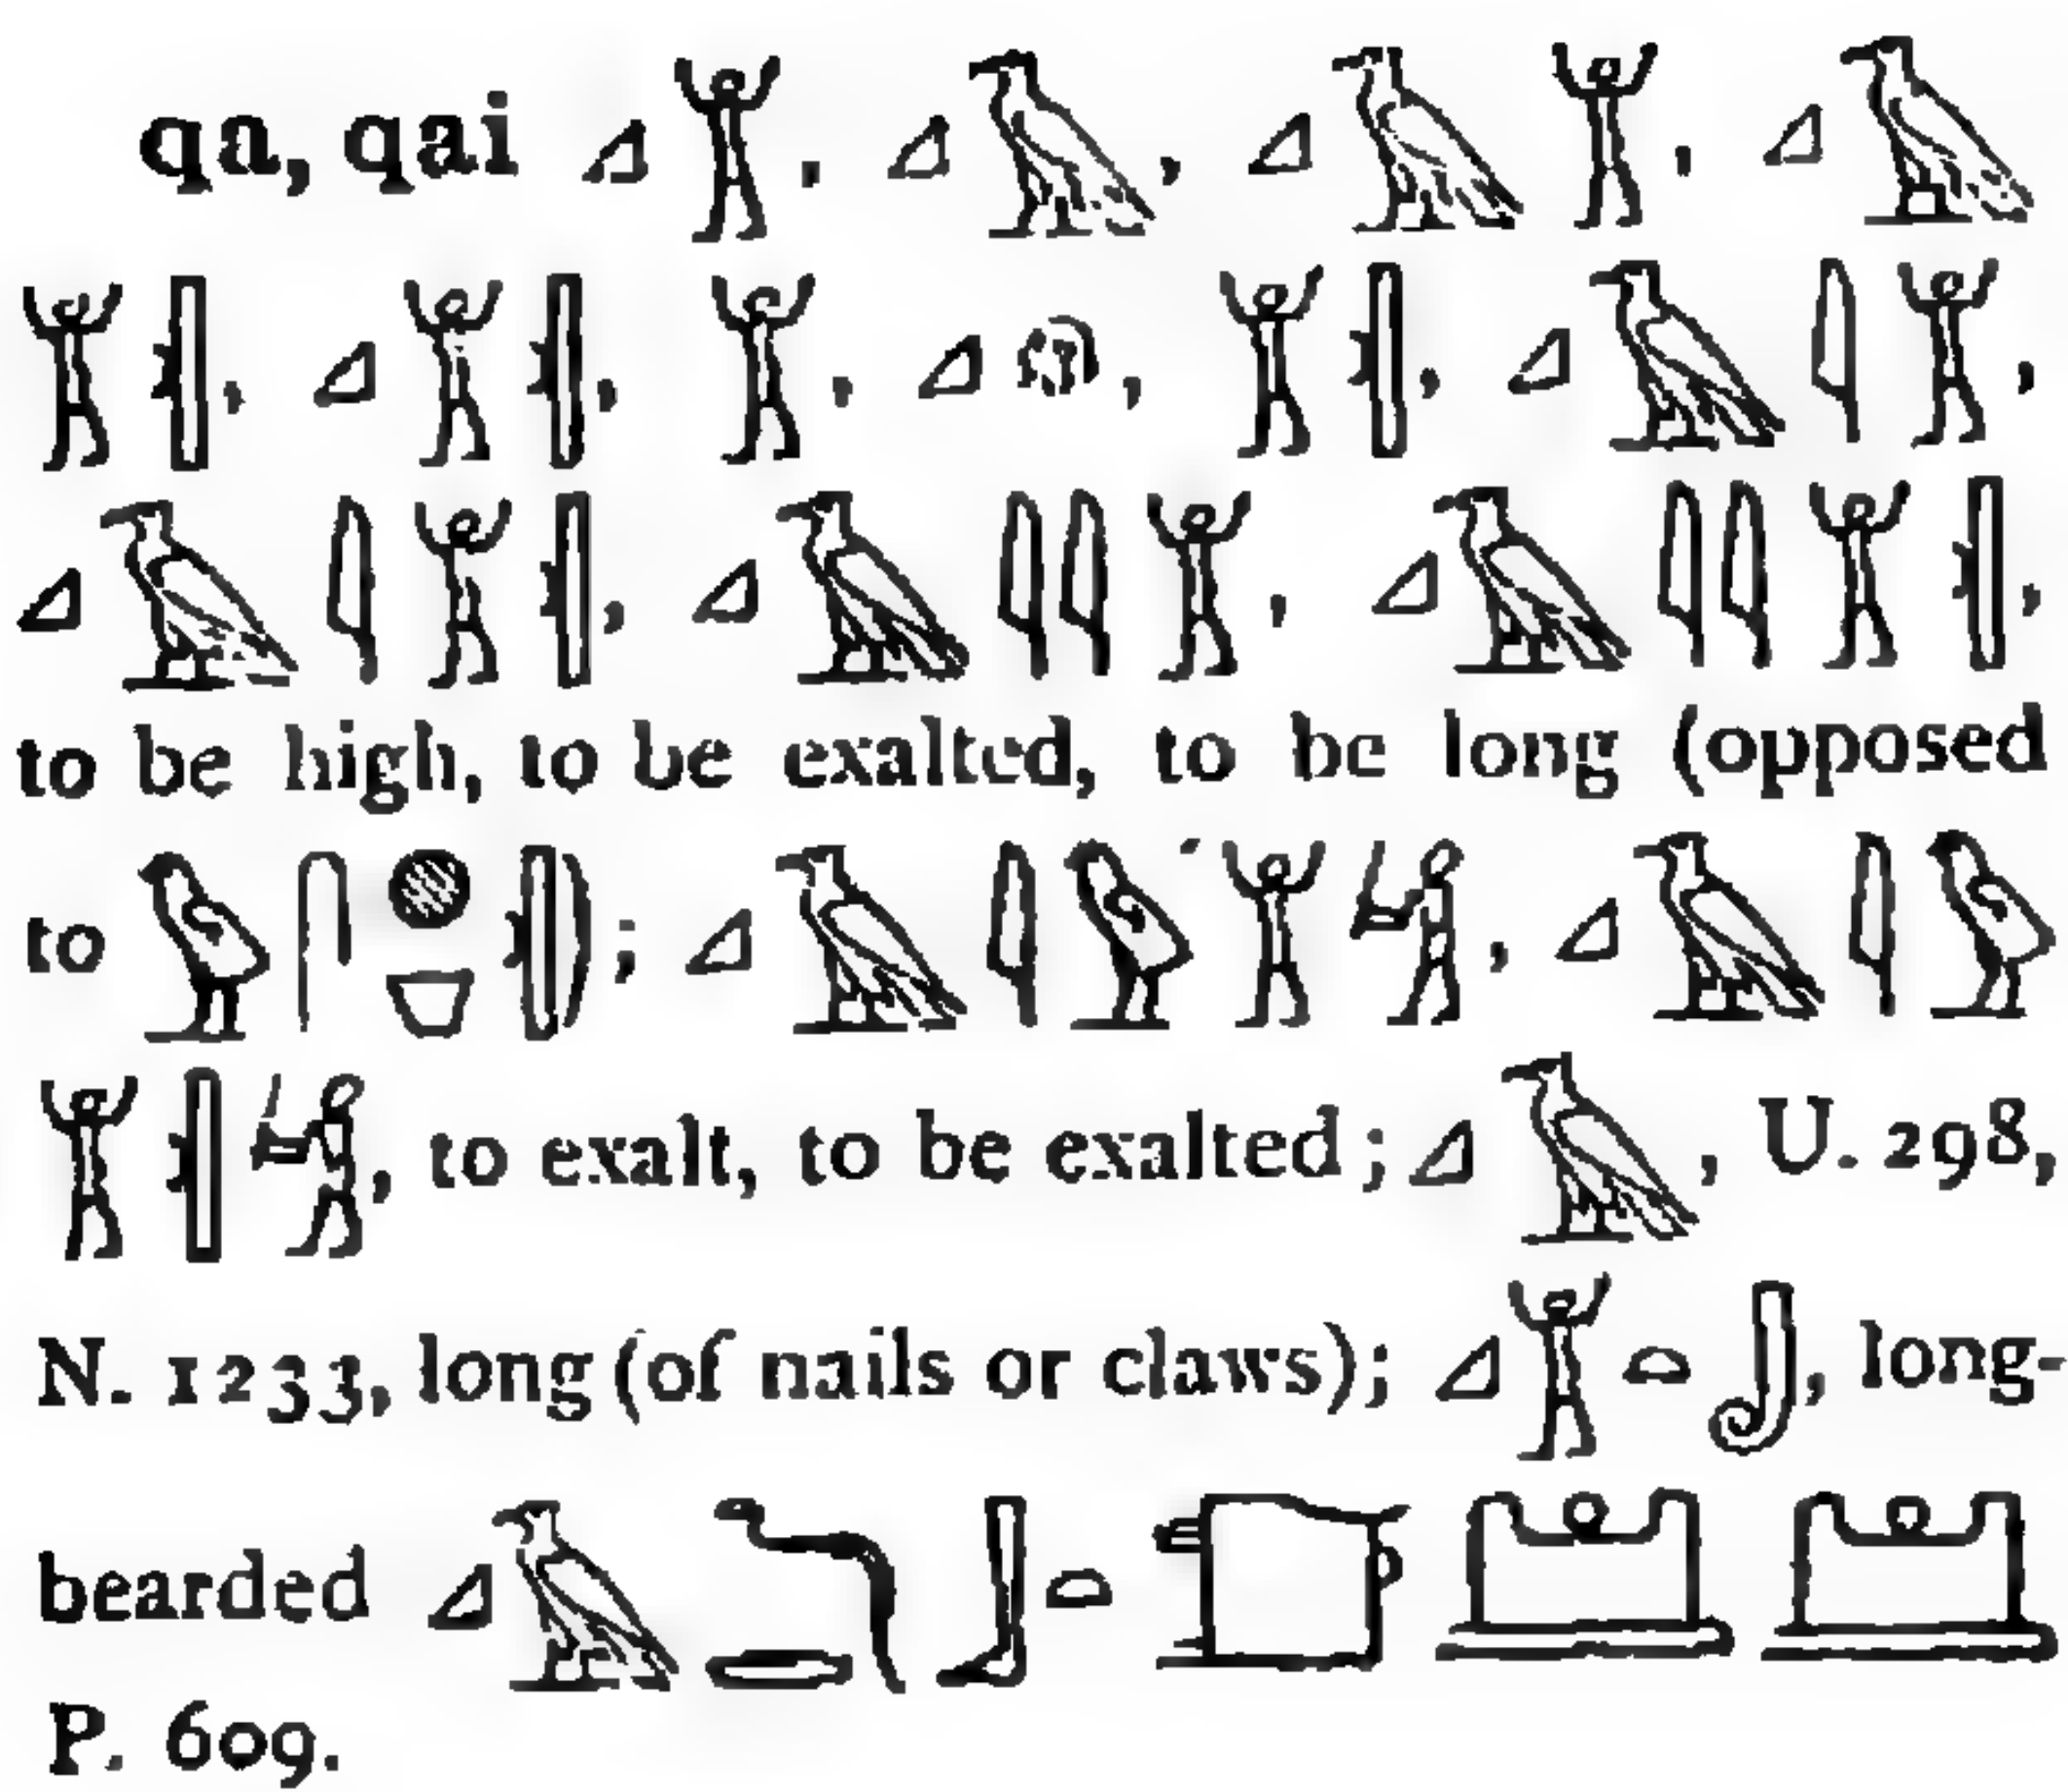 qa, qai 𓈎𓀠, 𓈎𓄿, 𓈎𓄿𓀠, 𓈎𓄿
𓀠𓏜, 𓈎𓀠𓏜, 𓀠, 𓈎, 𓀠𓏜, 𓈎𓄿𓇋𓀠,
𓈎𓄿𓇋𓀠𓏜, 𓈎𓄿𓇋𓇋𓀠, 𓈎𓄿𓇋𓇋𓀠𓏜,
to be high, to be exalted, to be long (opposed
to 𓅱𓋴𓐍𓏜; 𓈎𓄿𓇋𓅱𓀠𓀜, 𓈎𓄿𓇋𓅱
𓀠𓏜𓀜, to exalt, to be exalted; 𓈎𓄿, U. 298,
N. 1233, long (of nails or claws); 𓈎𓀠𓏏, long-
bearded 𓈎𓄿𓆓𓃀𓏏
P. 609.